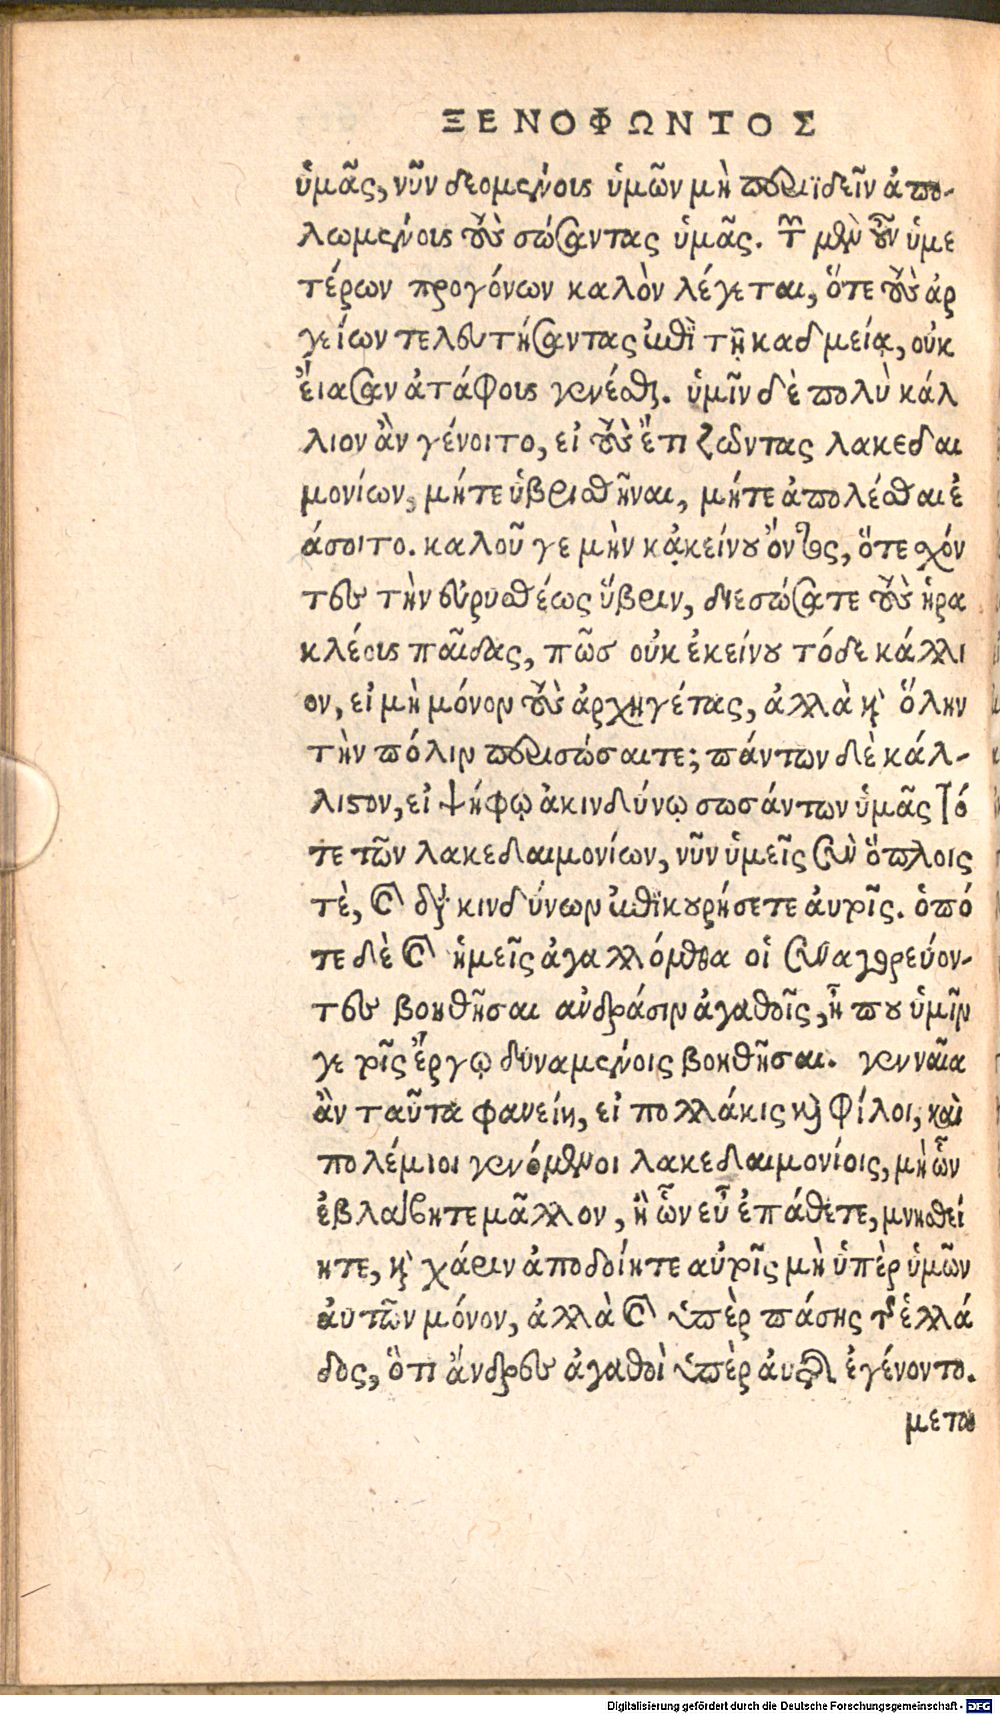 ΞΕΝΟΦΩΝΤΟΣ
ὑμᾶς, νῦν δεομένους ὑμῶν μὴ περιϊδεῖν ἀπο-
λωμένους τοὺς σώσαντας ὑμᾶς. τῶν μὲν οὖν ὑμε
τέρων προγόνων καλὸν λέγεται, ὅτε τοὺς ἀρ
γείων τελευτήσαντας ἐπὶ τῇ καδμείᾳ, οὐκ
εἴασαν ἀτάφους γενέσθαι. ὑμῖν δὲ πολὺ κάλ
λιον ἂν γένοιτο, εἰ τοὺς ἔτι ζῶντας λακεδαι
μονίων, μήτε ὑβρισθῆναι, μήτε ἀπολέσθαι ἐ
άσοιτο. καλοῦ γε μὴν κᾀκείνου ὄντος, ὅτε σχόν
τες τὴν εὐρυσθέως ὕβριν, διεσώσατε τοὺς ἡρα
κλέους παῖδας, πῶσ οὐκ ἐκείνου τόδε κάλλι
ον, εἰ μὴ μόνον τοὺς ἀρχηγέτας, ἀλλὰ καὶ ὅλην
τὴν πόλιν περισώσαιτε; πάντων δὲ κάλ-
λιστον, εἰ ψήφῳ ἀκινδύνῳ σωσάντων ὑμᾶς τό
τε τῶν λακεδαιμονίων, νῦν ὑμεῖς σὺν ὅπλοις
τὲ, καὶ διὰ κινδύνων ἐπϊκουρήσετε αὐτοῖς. ὁπό
τε δὲ καὶ ἡμεῖς ἀγαλλόμεθα οἱ συναγορεύον-
τες βοηθῆσαι ἀνδράσιν ἀγαθοῖς, ἦ που ὑμῖν
γε τοῖς ἔργῳ δυναμένοις βοηθῆσαι. γενναῖα
ἂν ταῦτα φανείη, εἰ πολλάκις καὶ φίλοι, καὶ
πολέμιοι γενόμενοι λακεδαιμονίοις, μὴ ὧν
ἐβλάβητε μᾶλλον, ἢ ὧν εὖ ἐπάθετε, μνησθεί
ητε, καὶ χάριν ἀποδοίητε αὐτοῖς μὴ ὑπὲρ ὑμῶν
αὐτῶν μόνον, ἀλλὰ καὶ ὑπὲρ πάσης τῆς ἑλλά
δος, ὅτι ἄνδρες ἀγαθοὶ ὑπὲρ αὐτῆς ἐγένοντο.
μετὰ
Digitalisierung gefördert durch die Deutsche Forschungsgemeinschaft - DFG